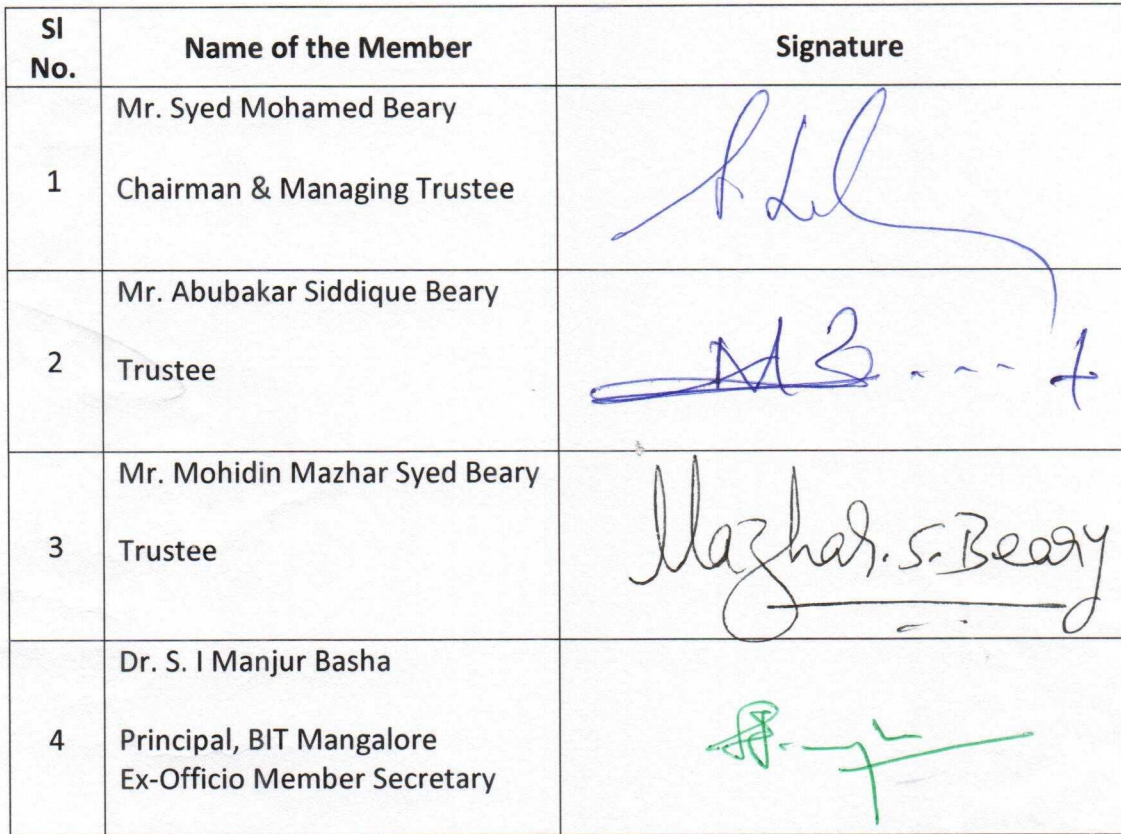 Sl No.
Name of the Member
Signature
Mr. Syed Mohamed Beary
1
Chairman & Managing Trustee
Mr. Abubakar Siddique Beary
2
Trustee
Mr. Mohidin Mazhar Syed Beary
3
Trustee
Mazhar. S. Beary
Dr. S. I Manjur Basha
4
Principal, BIT Mangalore
Ex-Officio Member Secretary